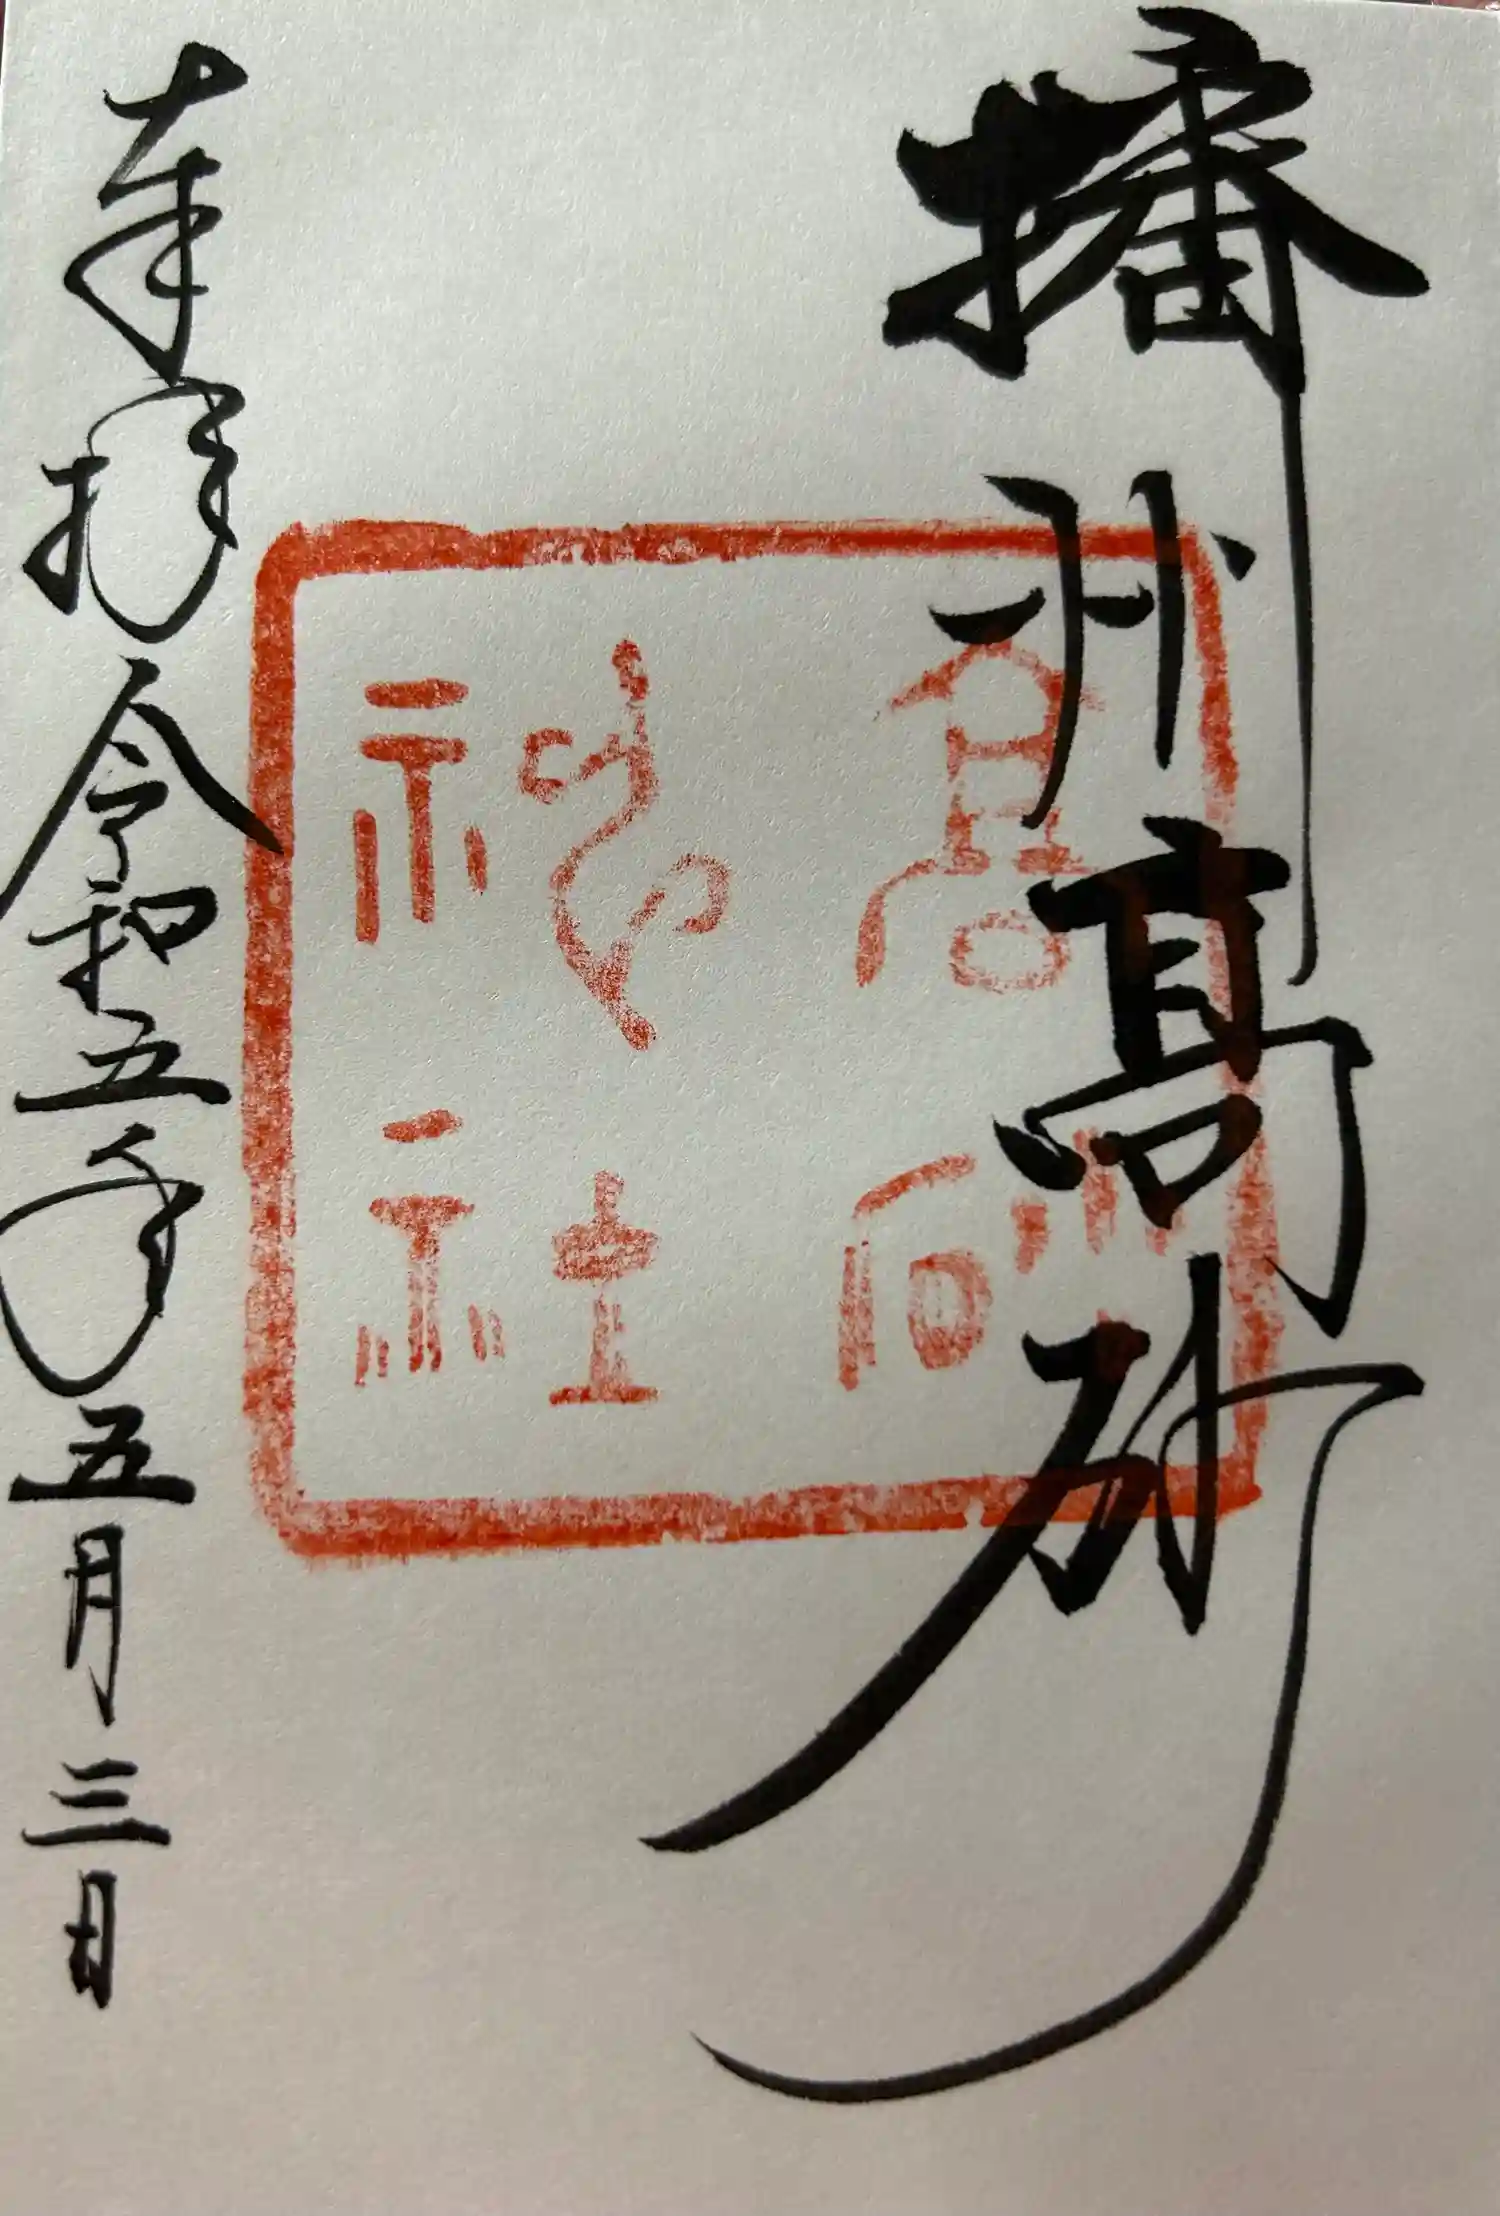 播州高砂
高砂
神社
奉拝令和五年五月三日